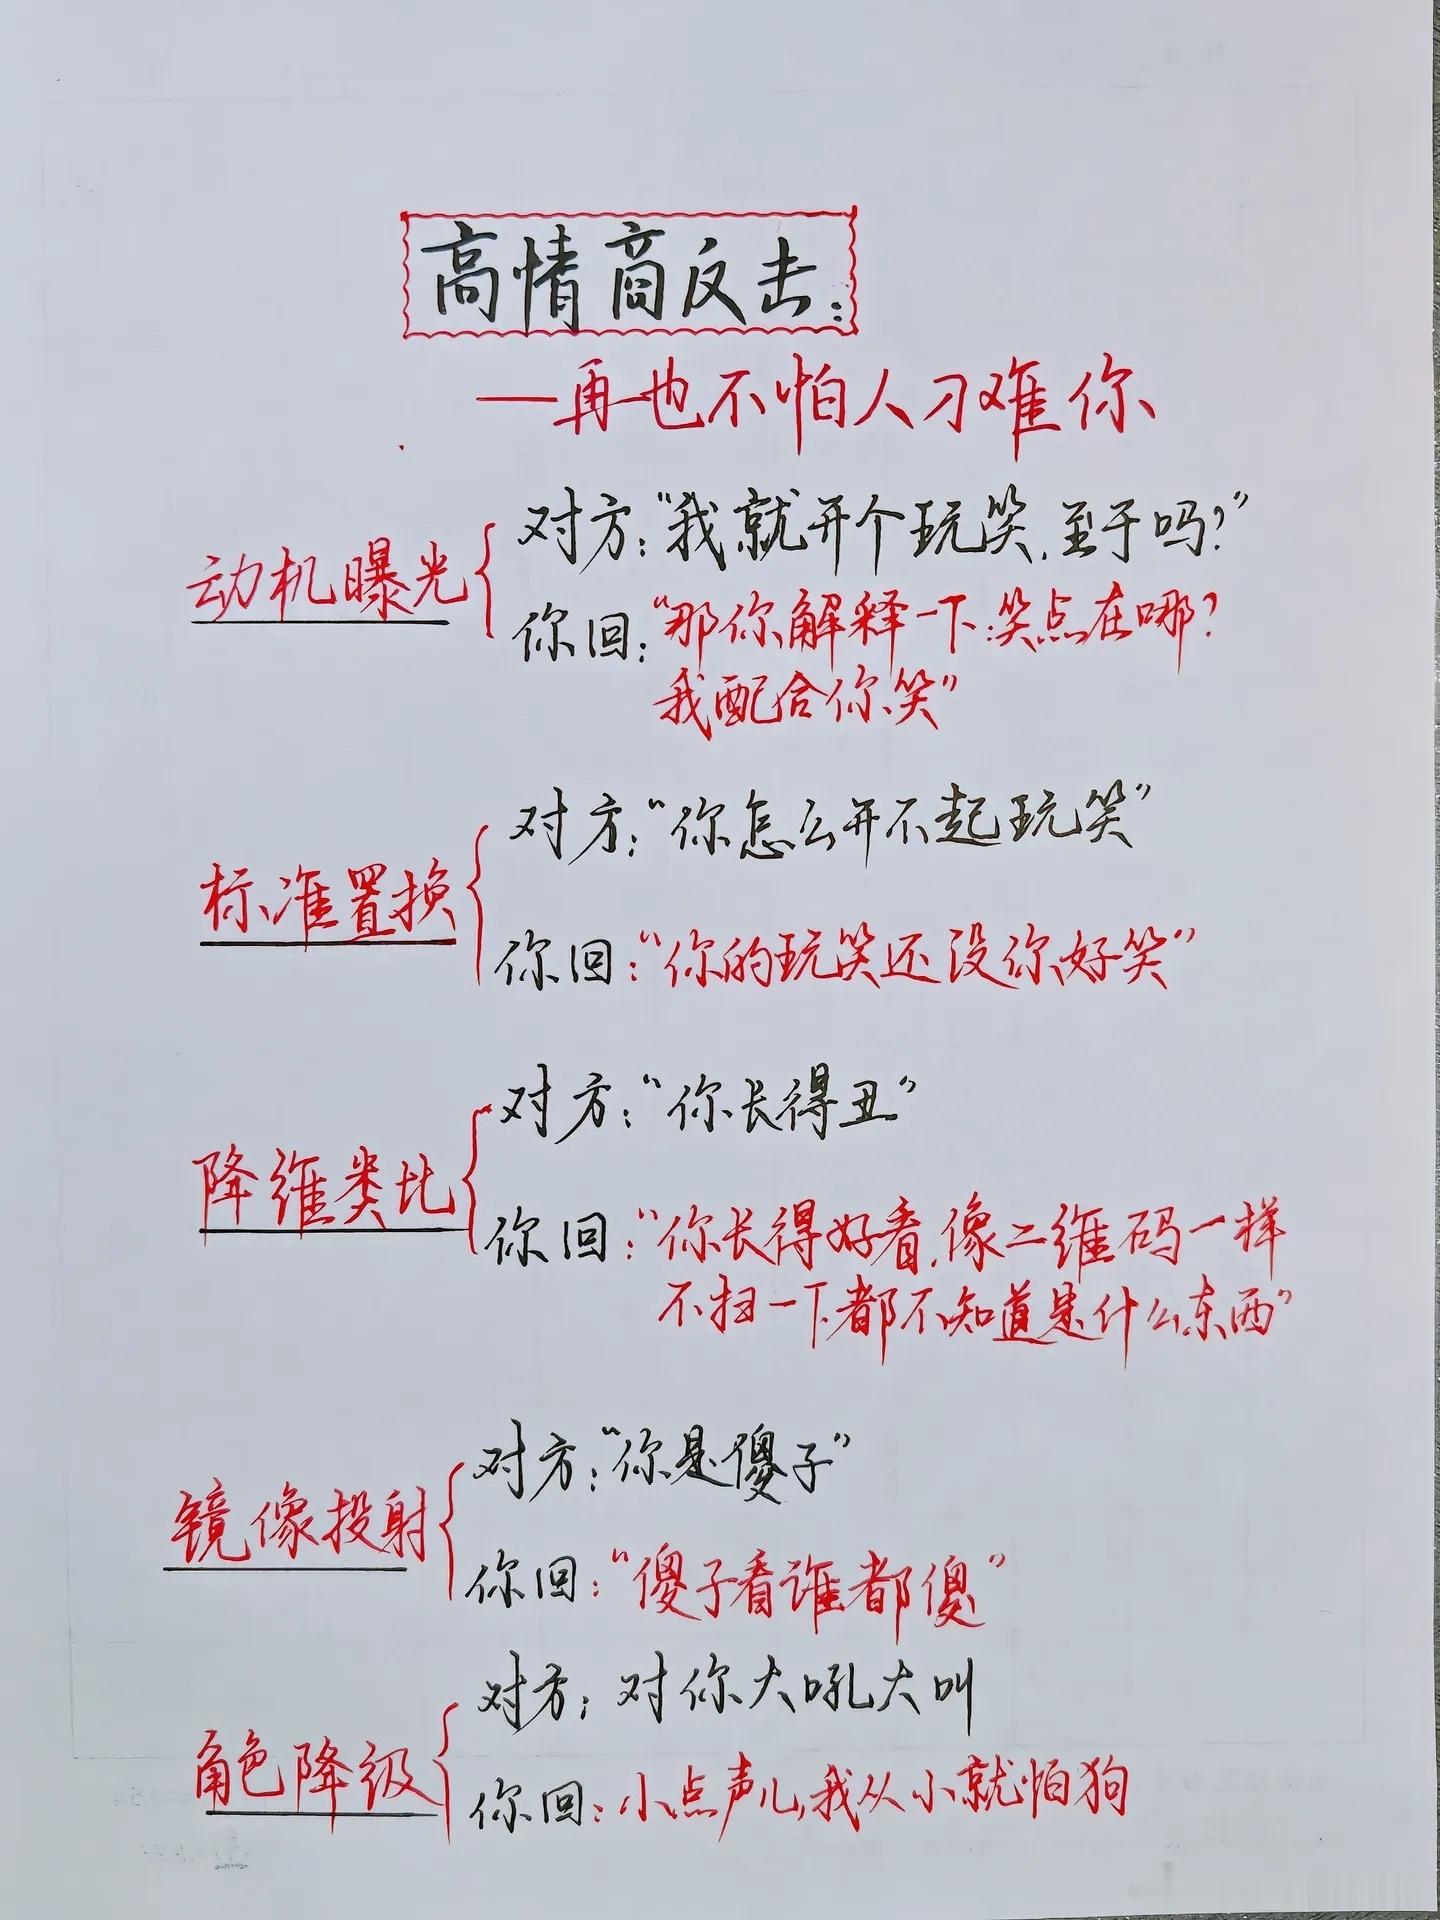 高情商反击:
—再也不怕人刁难你
动机曝光
对方:“我就开个玩笑,至于吗?”
你回:“那你解释一下:笑点在哪?
我配合你笑”
标准置换
对方:“你怎么开不起玩笑”
你回:“你的玩笑还没你好笑”
降维类比
对方:“你长得丑”
你回:“你长得好看,像二维码一样
不扫一下都不知道是什么东西”
镜像投射
对方:“你是傻子”
你回:“傻子看谁都傻”
角色降级
对方:对你大吼大叫
你回:小点声儿,我从小就怕狗